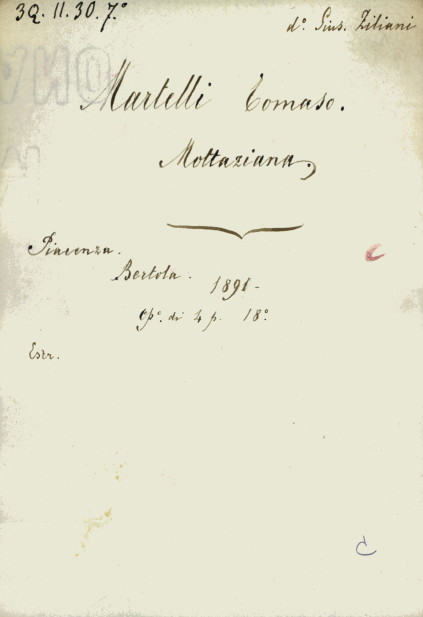 3Q. II. 30. 7.°
d°. Gius. Ziliani
Martelli Tomaso.
Mottaziana.
Piacenza.
Bertola. 1891-
Op°. di 4 p. 18°.
Estr.
C
C